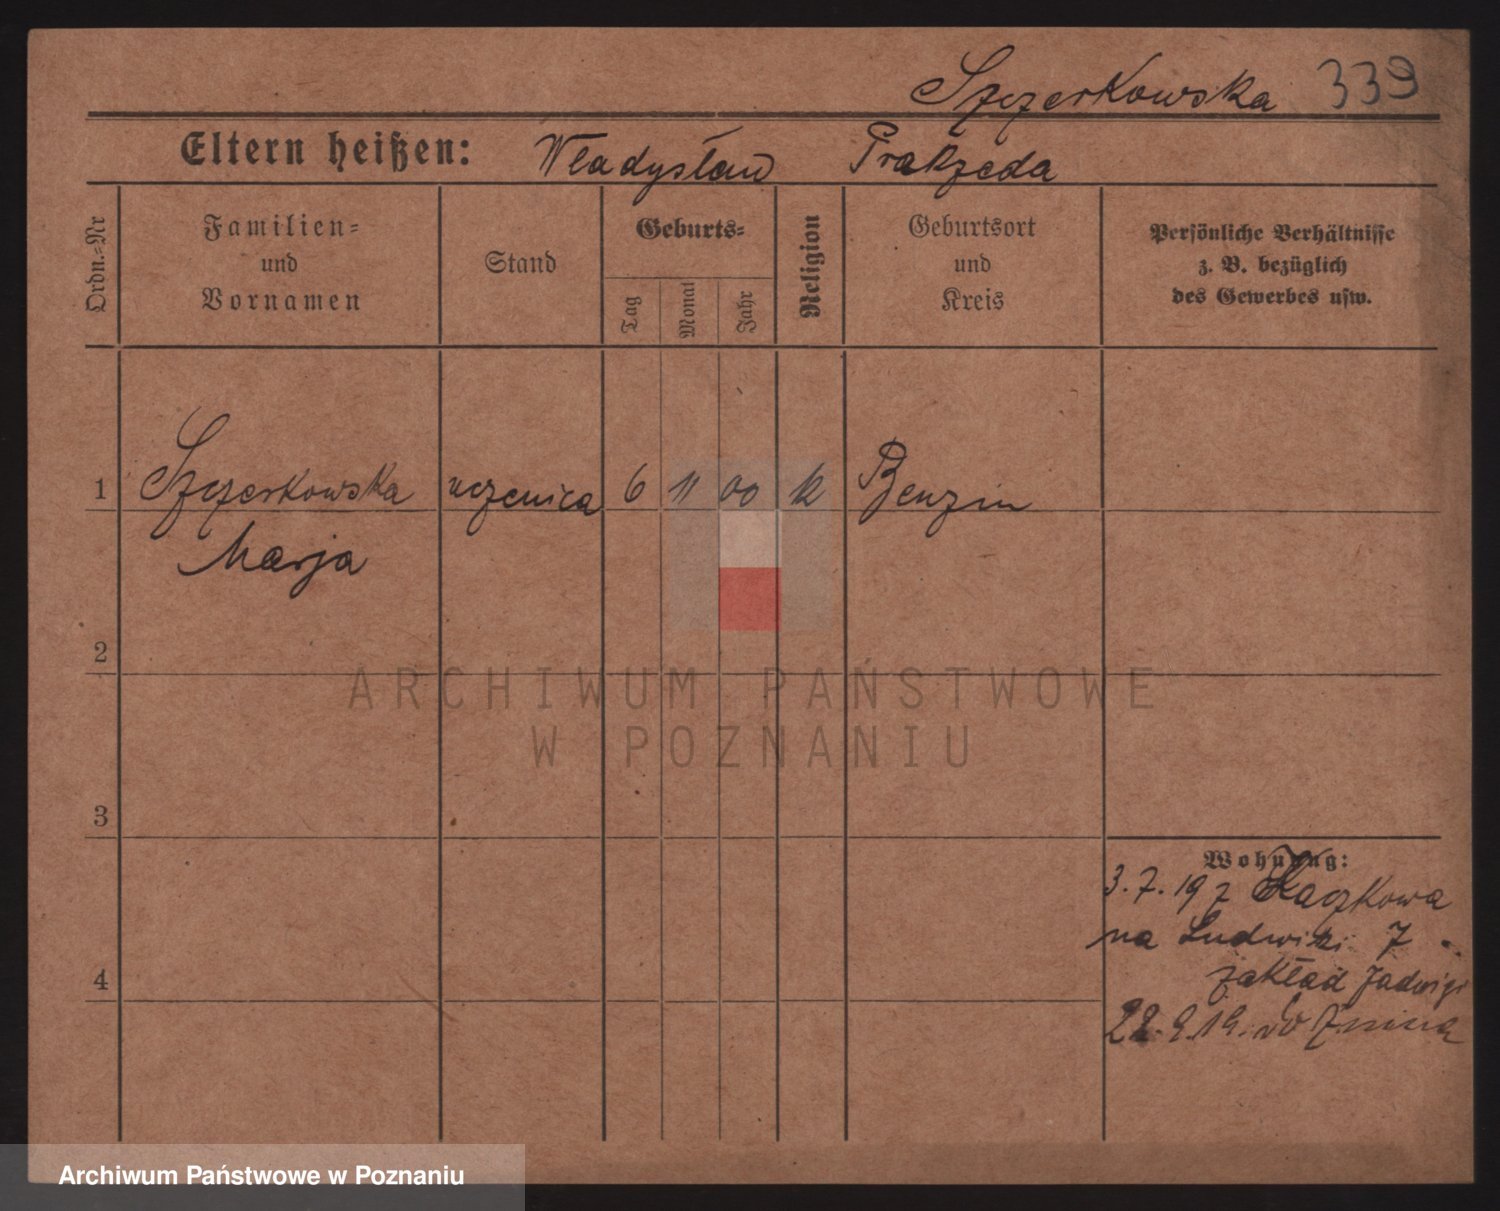 Szczerkowska 339
Eltern heißen: Władysław Prakzeda
Ordn.-Nr
Familien-
und
Vornamen
Stand
Geburts-
Tag
Monat
Jahr
Religion
Geburtsort
und
Kreis
Persönliche Verhältnisse
z. B. bezüglich
des Gewerbes usw.
1 Szczerkowska uczenica 6 11 00 k Benzin
Marja
2
3
4
Wohnung:
3.7.19 z Kaczkowa
na Ludwiki 7
zakład Jadwigi
22.9.19. do Żnina
ARCHIWUM PAŃSTWOWE
W POZNANIU
Archiwum Państwowe w Poznaniu